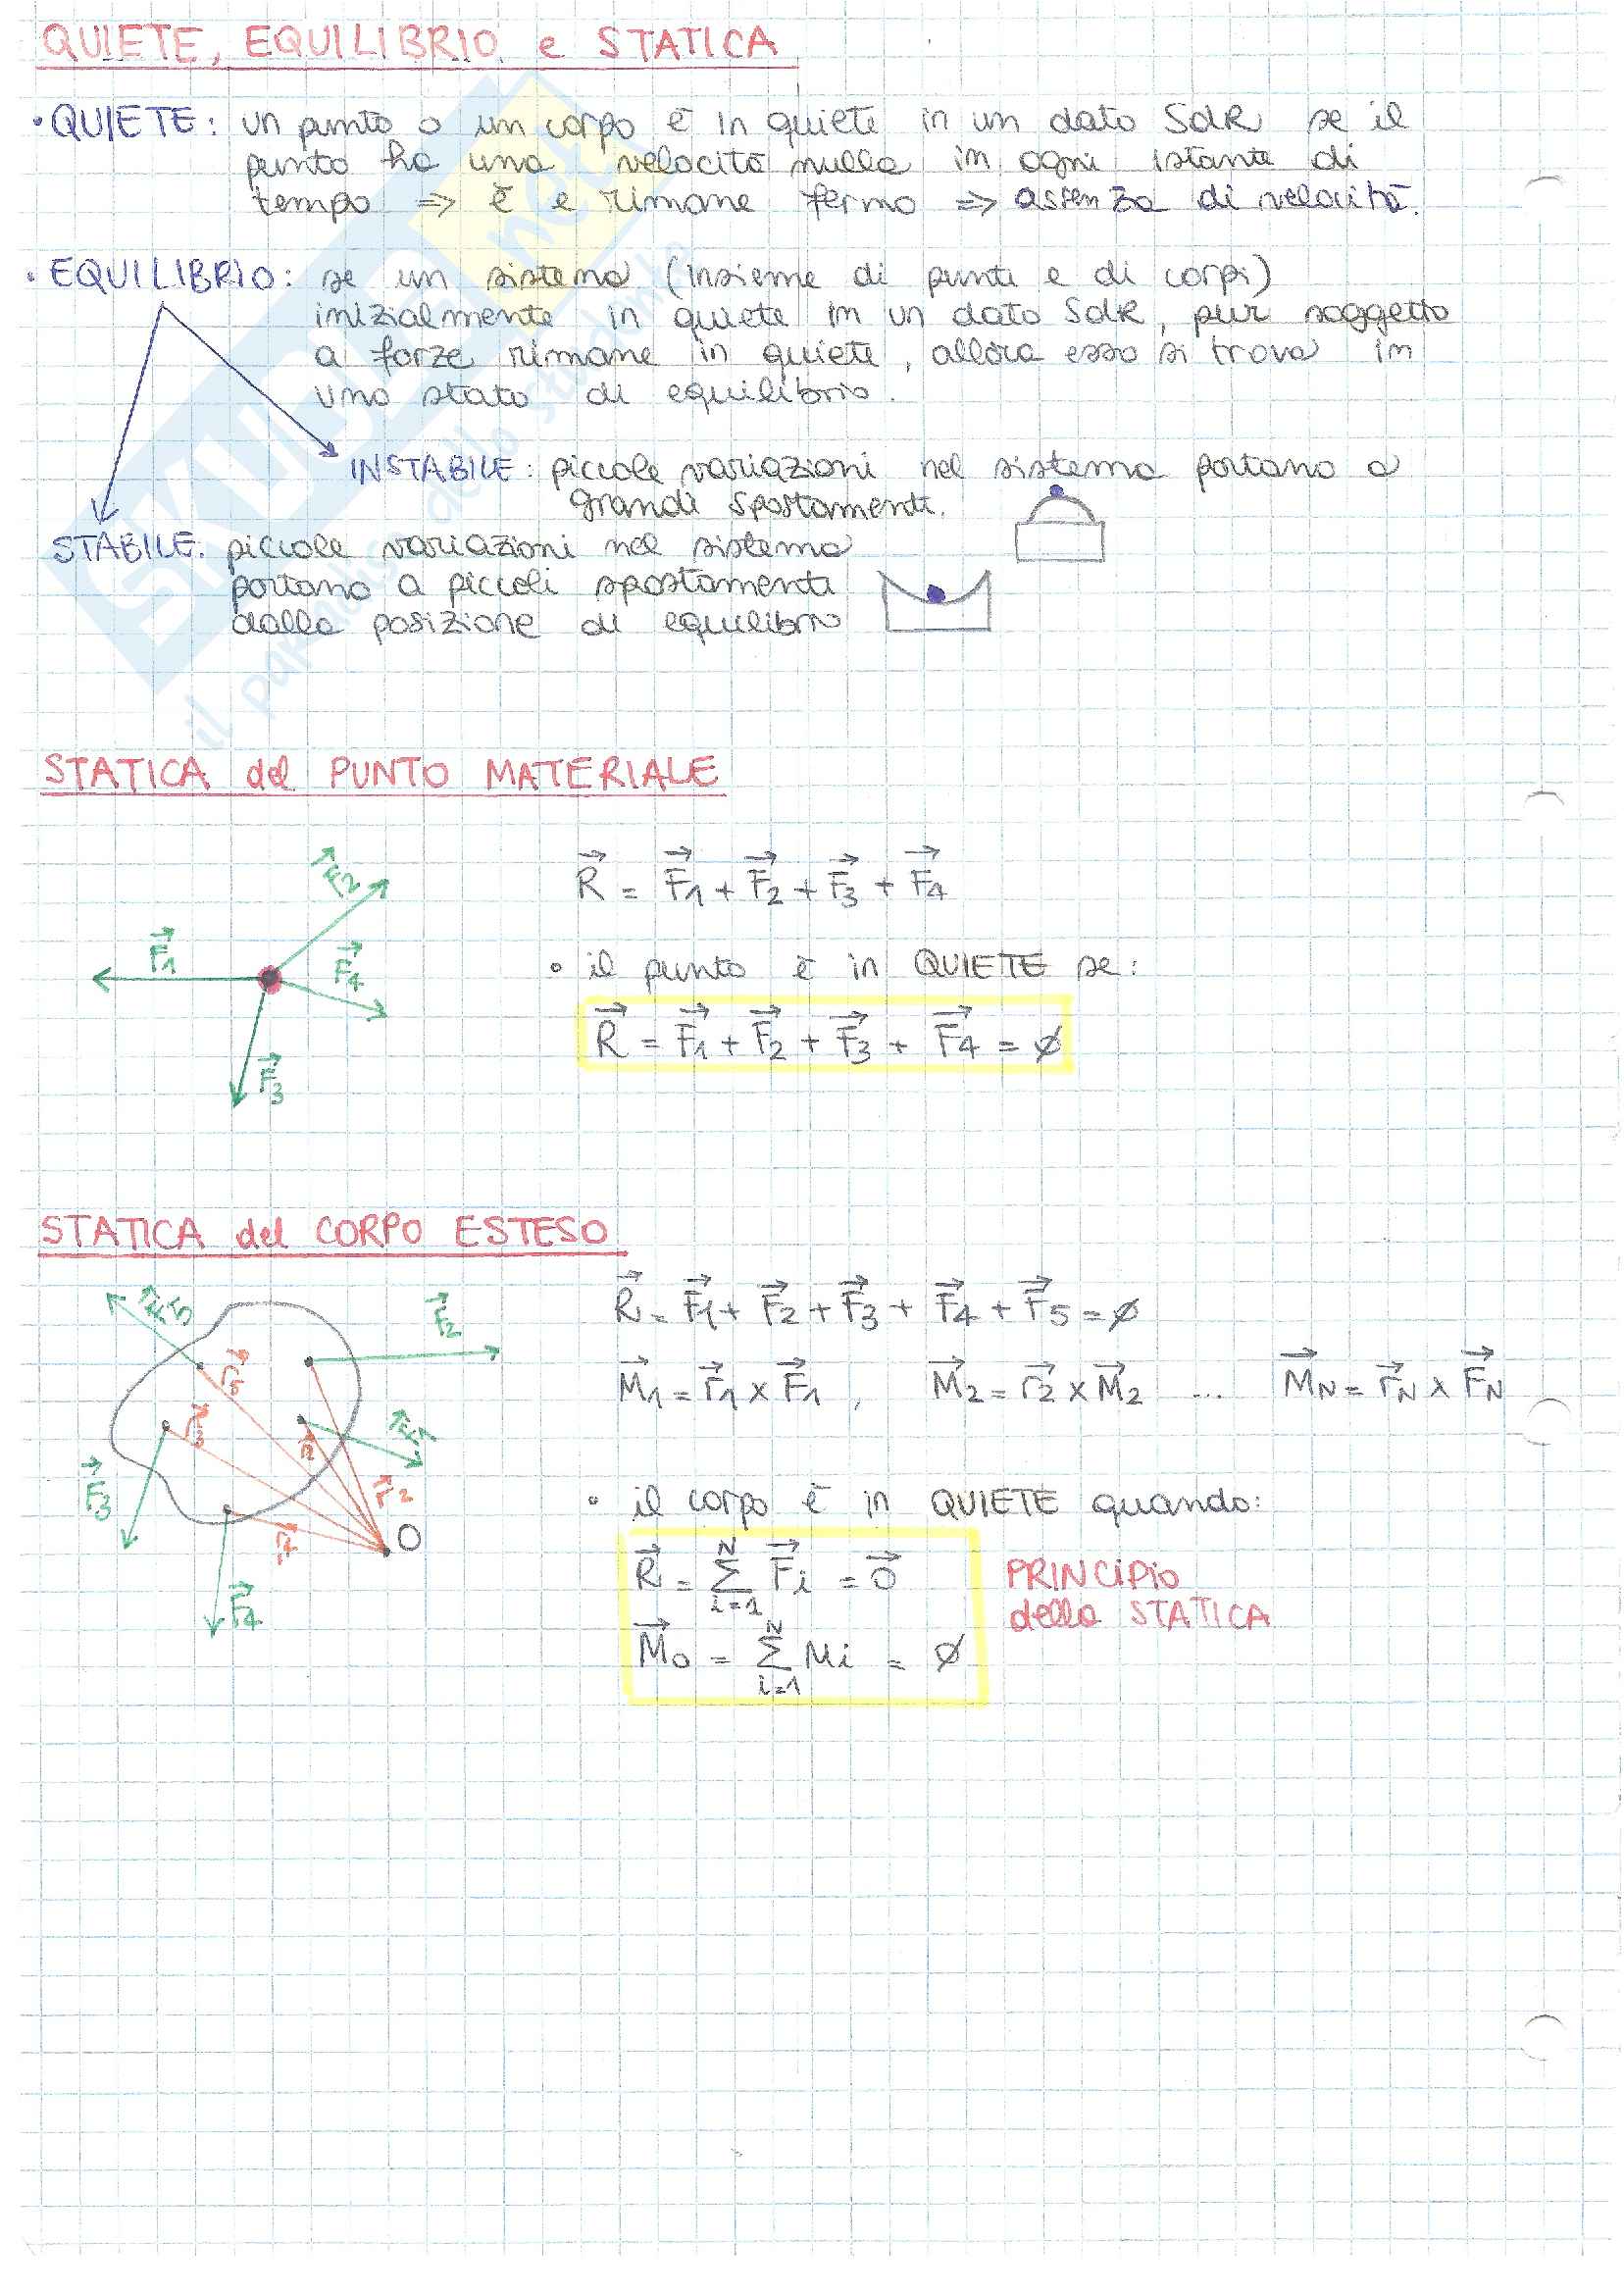 QUIETE, EQUILIBRIO e STATICA
• QUIETE: un punto o un corpo è in quiete in un dato SdR se il
punto ha una velocità nulla in ogni istante di
tempo ⇒ è e rimane fermo ⇒ assenza di velocità.
• EQUILIBRIO: se un sistema (insieme di punti e di corpi)
inizialmente in quiete in un dato SdR, pur soggetto
a forze rimane in quiete, allora esso si trova in
uno stato di equilibrio.
INSTABILE: piccole variazioni nel sistema portano a
grandi spostamenti.
STABILE: piccole variazioni nel sistema
portano a piccoli spostamenti
dalla posizione di equilibrio
STATICA del PUNTO MATERIALE
F⃗2
F⃗1
F⃗4
F⃗3
R⃗ = F⃗1 + F⃗2 + F⃗3 + F⃗4
• il punto è in QUIETE se:
R⃗ = F⃗1 + F⃗2 + F⃗3 + F⃗4 = ∅
STATICA del CORPO ESTESO
F⃗5
F⃗2
r⃗5
r⃗3
F⃗1
F⃗3
r⃗2
O
F⃗4
R⃗ = F⃗1 + F⃗2 + F⃗3 + F⃗4 + F⃗5 = ∅
M⃗1 = r⃗1 × F⃗1 , M⃗2 = r⃗2 × M⃗2 ... M⃗N = r⃗N × F⃗N
• il corpo è in QUIETE quando:
R⃗ = Σ i=1 N F⃗i = 0⃗
M⃗o = Σ i=1 N Mi = ∅
PRINCIPIO
della STATICA